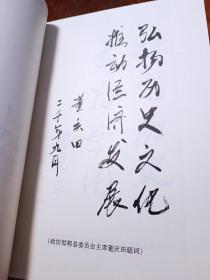 弘扬历史文化
推动经济发展
董庆田
二千年九月
(政协邯郸县委员会主席董庆田题词)